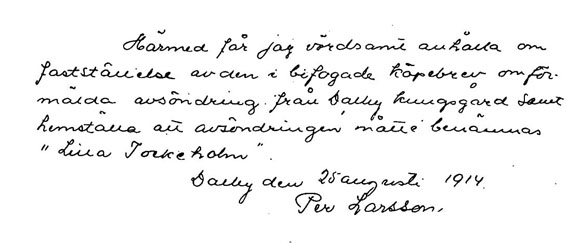 Härmed får jag vördsamt anhålla om
fastställelse av den i bifogade köpebrev omför-
mälda avsöndring från Dalby kungsgård samt
hemställa att avsöndringen måtte benämnas
"Lilla Tockeholm".
Dalby den 25 augusti 1914.
Per Larsson.